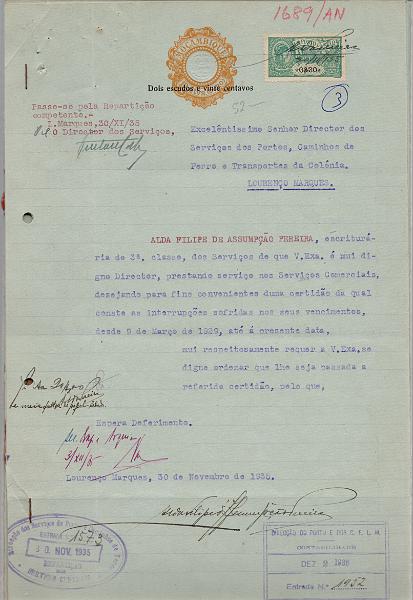 1689/AN
MOÇAMBIQUE
Dois escudos e vinte centavos
52-
3
Passe-se pela Repartição
competente.-
L.Marques,30/XI/35
O Director dos Serviços,
Excelêntissimo Senhor Director dos
Serviços dos Portos, Caminhos de
Ferro e Transportes da Colónia.
LOURENÇO MARQUES.
ALDA FILIPE DE ASSUMPÇÃO PEREIRA, escriturá-
ria de 3ª. classe, dos Serviços de que V.Exa. é mui di-
gno Director, prestando serviço nos Serviços Comerciais,
desejando para fins convenientes duma certidão da qual
conste as interrupções sofridas nos seus vencimentos,
desde 9 de Março de 1929, até á presente data,
mui respeitosamente requer a V.Exa.se
digne ordenar que lhe seja passada a
referida certidão, pelo que,
Espera Deferimento.
3/XII/35
Lourenço Marques, 30 de Novembro de 1935.
Alda Filipe d'Assumpção Pereira
ENTRADA 1573
30 NOV. 1935
DIRECÇÃO DO PORTO E DOS C. F. L. M.
CONTABILIDADE
DEZ 2 1935
Entrada N.º 1952